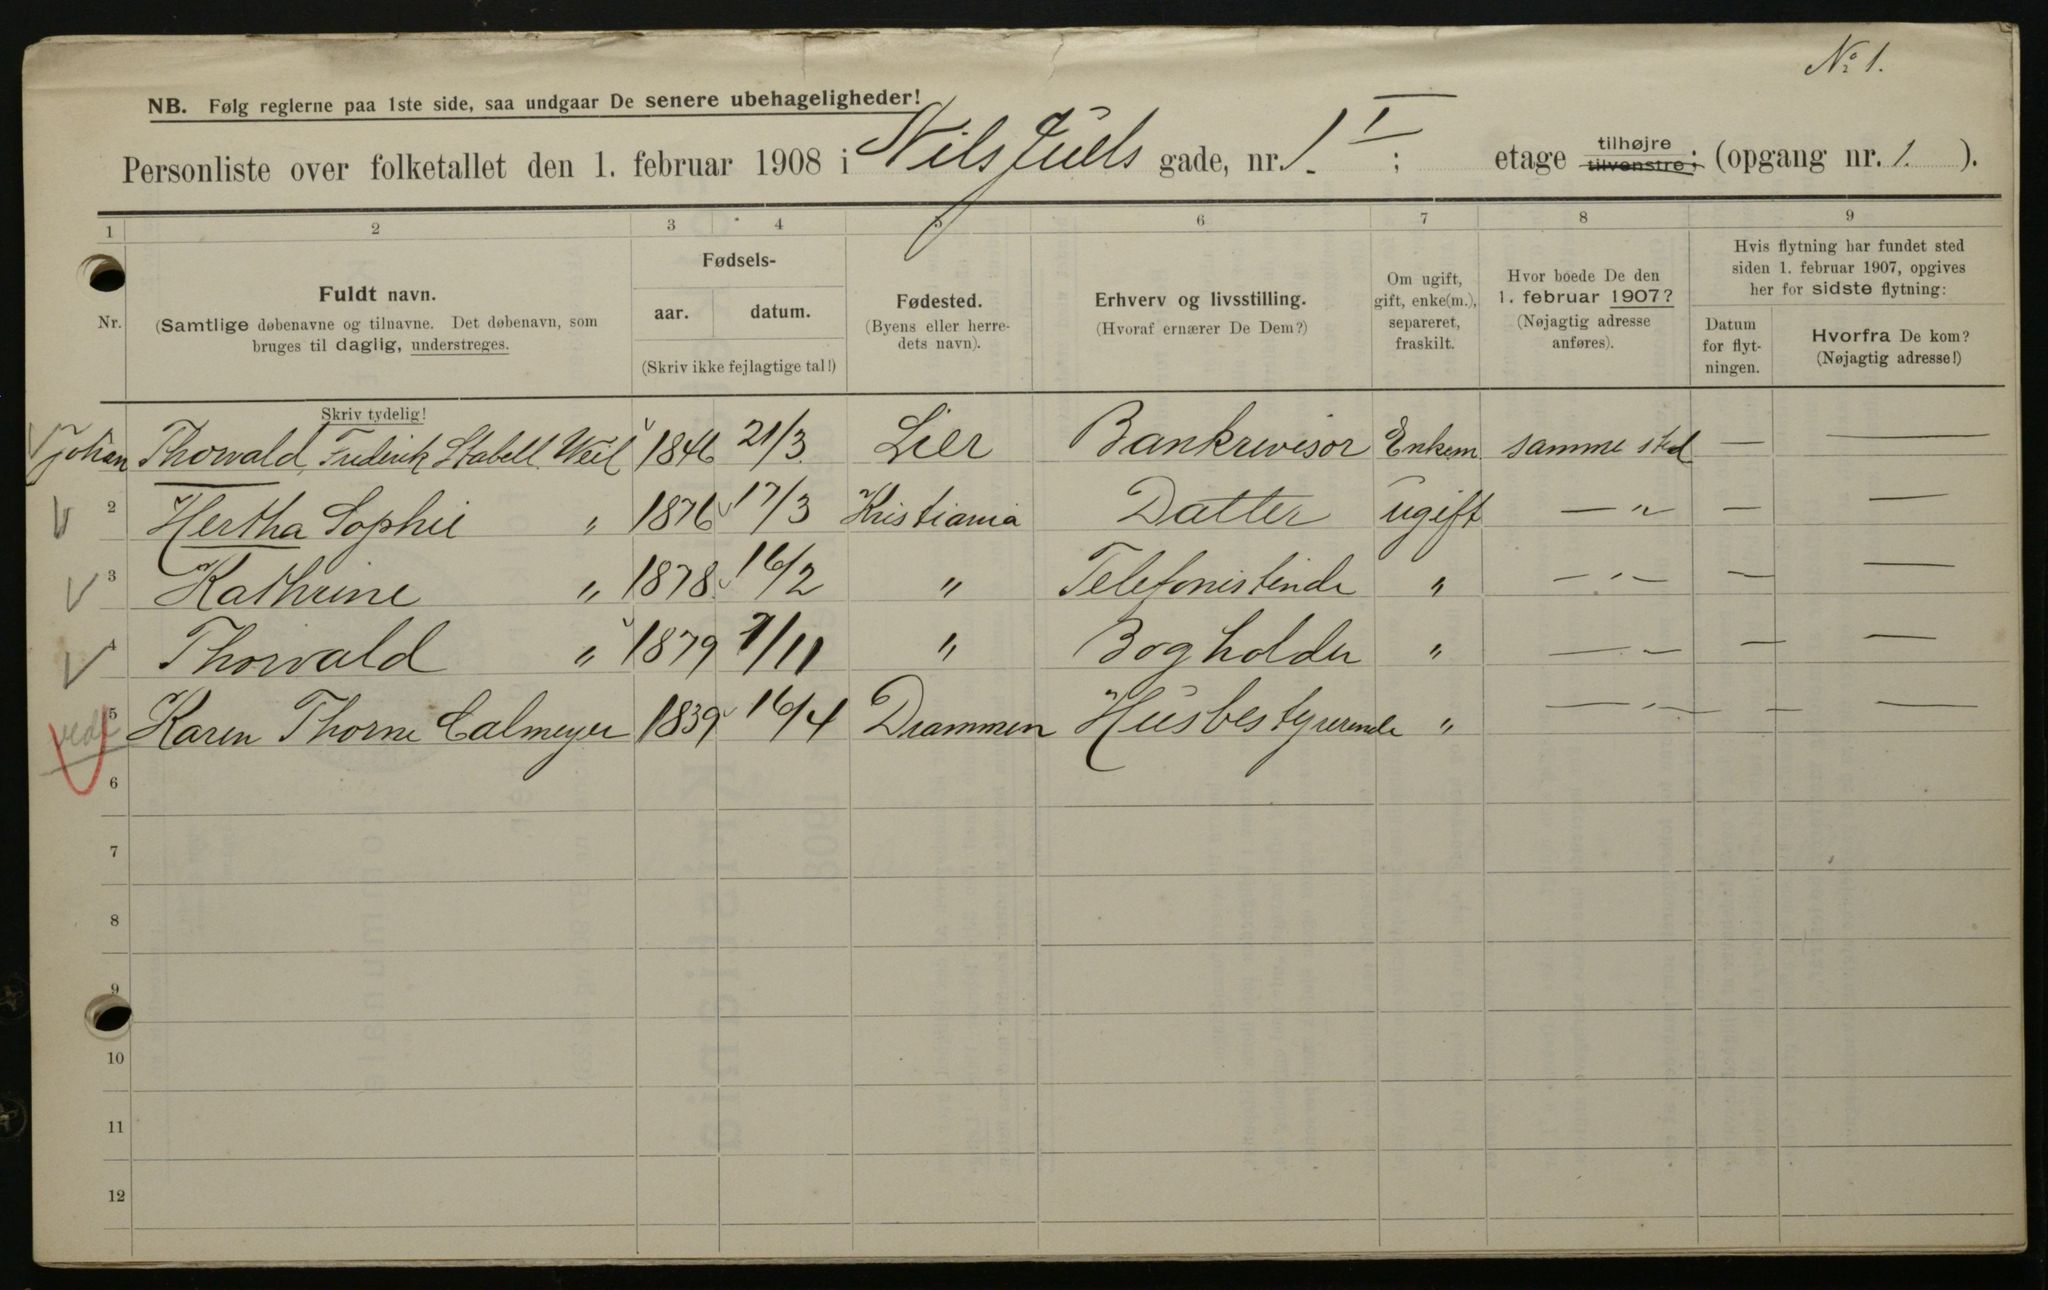 № 1.
NB. Følg reglerne paa 1ste side, saa undgaar De senere ubehageligheder!
Personliste over folketallet den 1. februar 1908 i Nils Juels gade, nr. 1. I ; etage tilhøjre tilvenstre; (opgang nr. 1. ).
1 2 3 4 5 6 7 8 9
Nr. Fuldt navn. (Samtlige døbenavne og tilnavne. Det døbenavn, som bruges til daglig, understreges.
Skriv tydelig!
Fødsels- aar. datum. (Skriv ikke fejlagtige tal!)
Fødested. (Byens eller herredets navn).
Erhverv og livsstilling. (Hvoraf ernærer De Dem?)
Om ugift, gift, enke(m.), separeret, fraskilt.
Hvor boede De den 1. februar 1907? (Nøjagtig adresse anføres).
Hvis flytning har fundet sted siden 1. februar 1907, opgives her for sidste flytning:
Datum for flytningen. Hvorfra De kom? (Nøjagtig adresse!)
Johan Thorvald, Frederik Stabell Weil 1846 21/3 Lier Bankrevisor Enkem. samme sted — —
2 Hertha Sophie " 1876 17/3 Kristiania Datter ugift — " — — —
3 Kathrine " 1878 16/2 " Telefonistinde " — " — — —
4 Thorvald " 1879 7/11 " Bogholder " — " — — —
5 Karen Thorne Calmeyer 1839 16/4 Drammen Husbestyrerinde " — " — — —
6
7
8
9
10
11
12